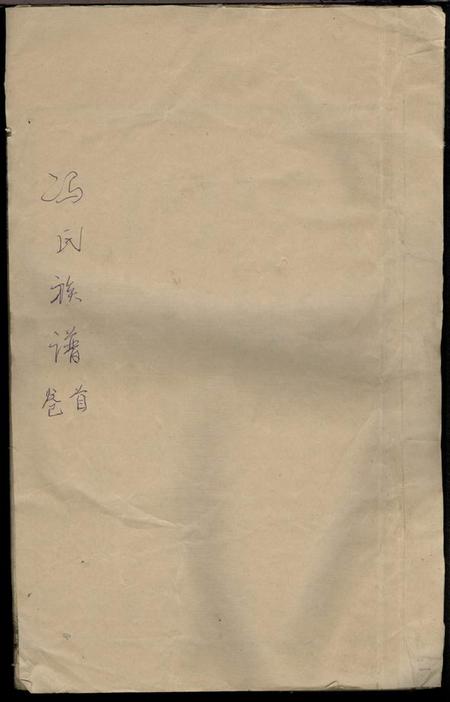 冯氏族谱
卷首